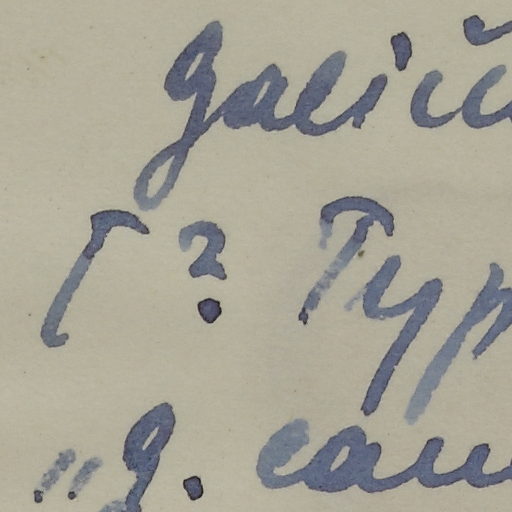 galič
[? Typ
„g. cau